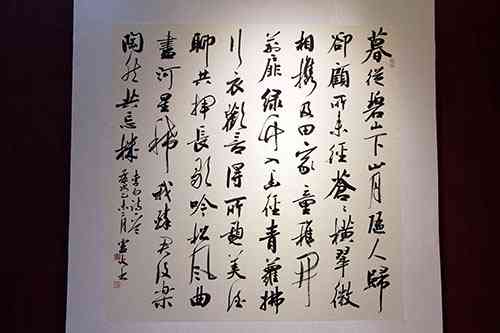 暮從碧山下山月隨人歸
卻顧所來徑蒼〻橫翠微
相攜及田家童稚開
荊扉綠竹入幽徑青蘿拂
行衣歡言得所憩美酒
聊共揮長歌吟松風曲
盡河星稀我醉君復樂
陶然共忘機
李白詩